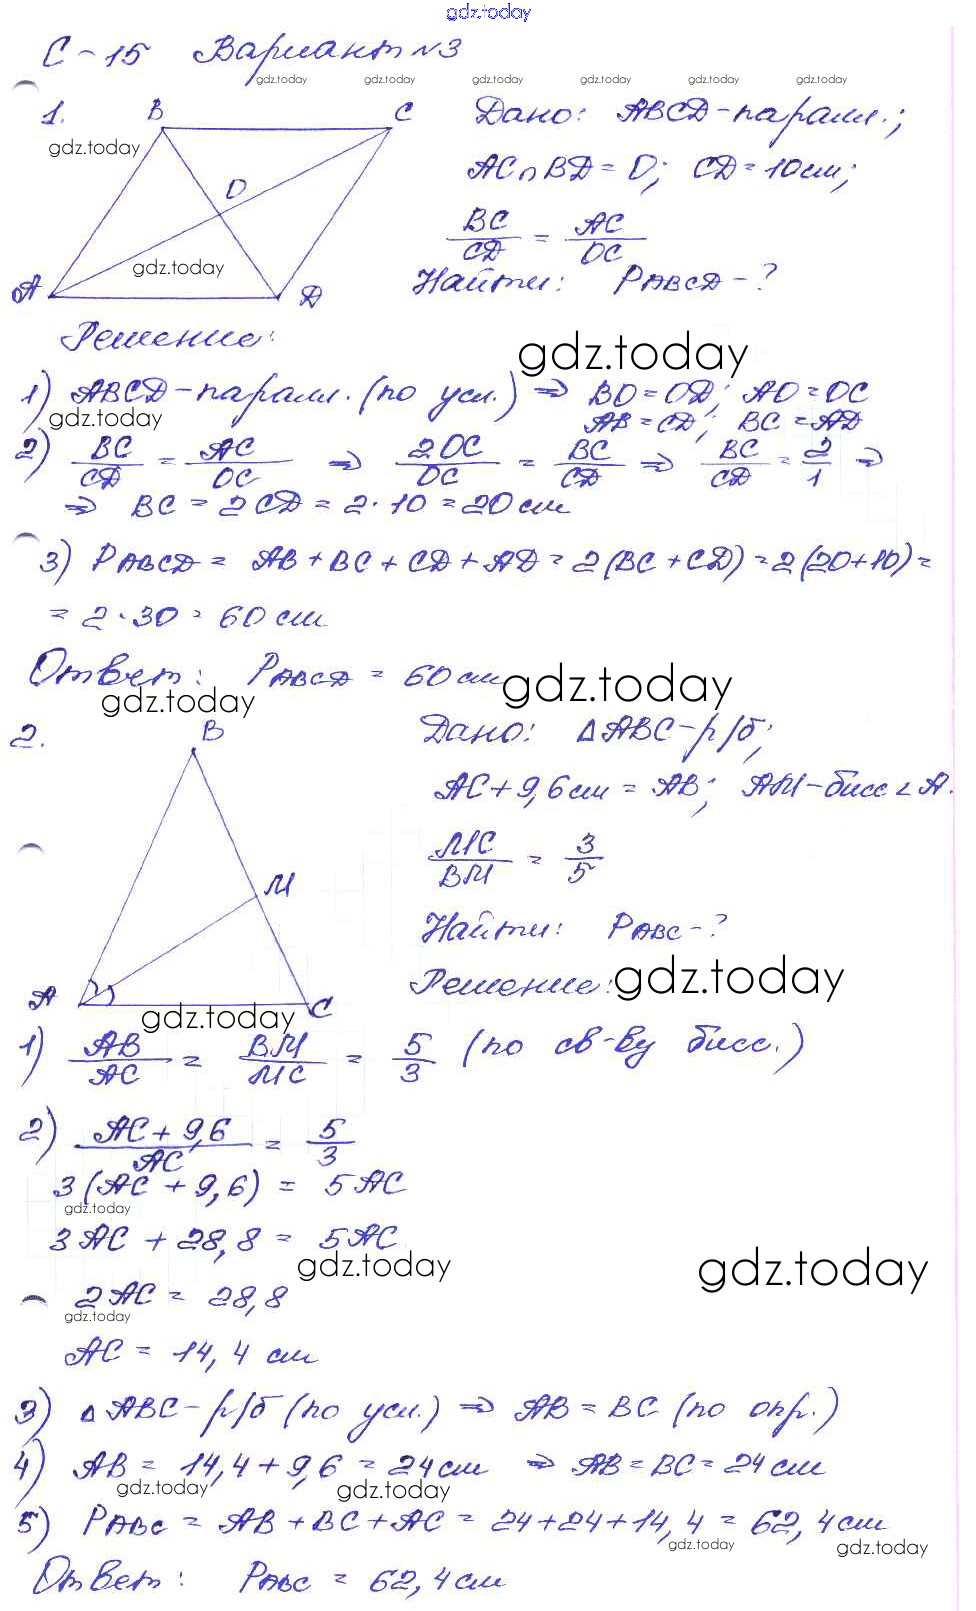 gdz.today
С-15 Вариант №3
gdz.today gdz.today gdz.today gdz.today gdz.today gdz.today
1. B C
gdz.today
O
gdz.today
A D
Дано: ABCD-паралл.;
AC∩BD=O; CD=10см;
BC/CD = AC/OC
Найти: P ABCD-?
Решение:
gdz.today
1) ABCD-паралл. (по усл.) ⇒ BO=OD; AO=OC
gdz.today
AB=CD; BC=AD
2) BC/CD = AC/OC ⇒ 2OC/OC = BC/CD ⇒ BC/CD = 2/1 ⇒
⇒ BC = 2CD = 2·10 = 20 см
3) P ABCD = AB+BC+CD+AD = 2(BC+CD) = 2(20+10) =
= 2·30 = 60 см
Ответ: P ABCD = 60 см
gdz.today
gdz.today
2. B
M
A C
Дано: △ABC-р/б;
AC+9,6см = AB; AM-бисс ∠A.
MC/BM = 3/5
Найти: P ABC-?
Решение:
gdz.today
gdz.today
1) AB/AC = BM/MC = 5/3 (по св-ву бисс.)
2) AC+9,6/AC = 5/3
3(AC+9,6) = 5AC
gdz.today
3AC+28,8 = 5AC
gdz.today
gdz.today
2AC = 28,8
gdz.today
AC = 14,4 см
3) △ABC-р/б (по усл.) ⇒ AB=BC (по опр.)
4) AB = 14,4+9,6 = 24 см ⇒ AB=BC=24 см
gdz.today gdz.today
5) P ABC = AB+BC+AC = 24+24+14,4 = 62,4 см
gdz.today gdz.today
Ответ: P ABC = 62,4 см